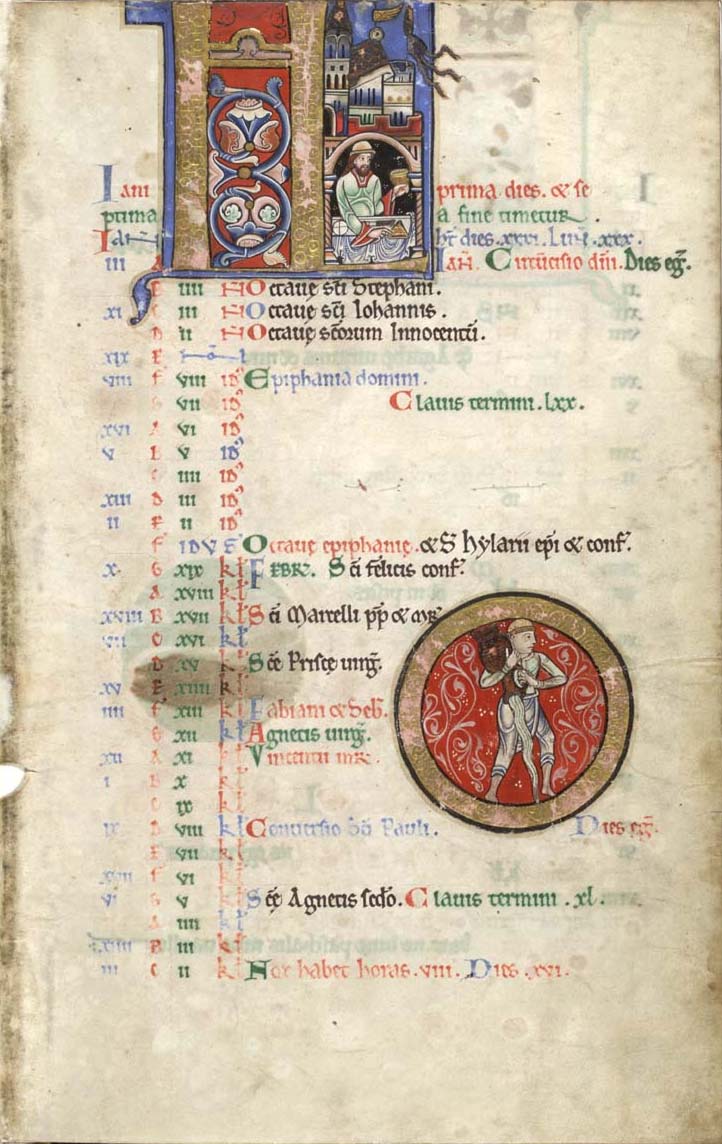 Iani prima dies. & se
ptima a fine timetur.
Ian̄ hт̄ dies. xxxi. Lun̄. xxx.
iii A Ian̄. Circūcisio dn̄i. Dies eḡ.
B iiii N̄ Octauę sc̄i Stephani.
xi C iii N̄ Octauę sc̄i Iohannis.
D ii N̄ Octauę sc̄orum Innocentū.
xix E Nō
viii F viii id' Epiphania domini.
G vii id' Clauis termini. lxx.
xvi A vi id'
v B v id'
C iiii id'
xiii D iii id'
ii E ii id'
F IDVS Octauę epiphanię. & S Hylarii ep̄i & conf.
x. G xix kl FEBR̄. Sc̄i felicis conf.
A xviii kl
xviii B xvii kl Sc̄i Marcelli pp̄ & mr̄
vii C xvi kl
D xv kl Sc̄e Priscę uirḡ.
xv E xiiii kl
iiii F xiii kl Fabiani & Seb̄.
G xii kl Agnetis uirḡ.
xii A xi kl Vincentii mr̄
i B x kl
C ix kl
ix D viii kl Conuersio Pauli. Dies eḡ.
E vii kl
xvii F vi kl
vi G v kl Sc̄ę Agnetis scdo. Clauis termini. xl.
A iiii kl
xiiii B iii kl
iii C ii kl Nox habet horas. viii. Dies. xvi.